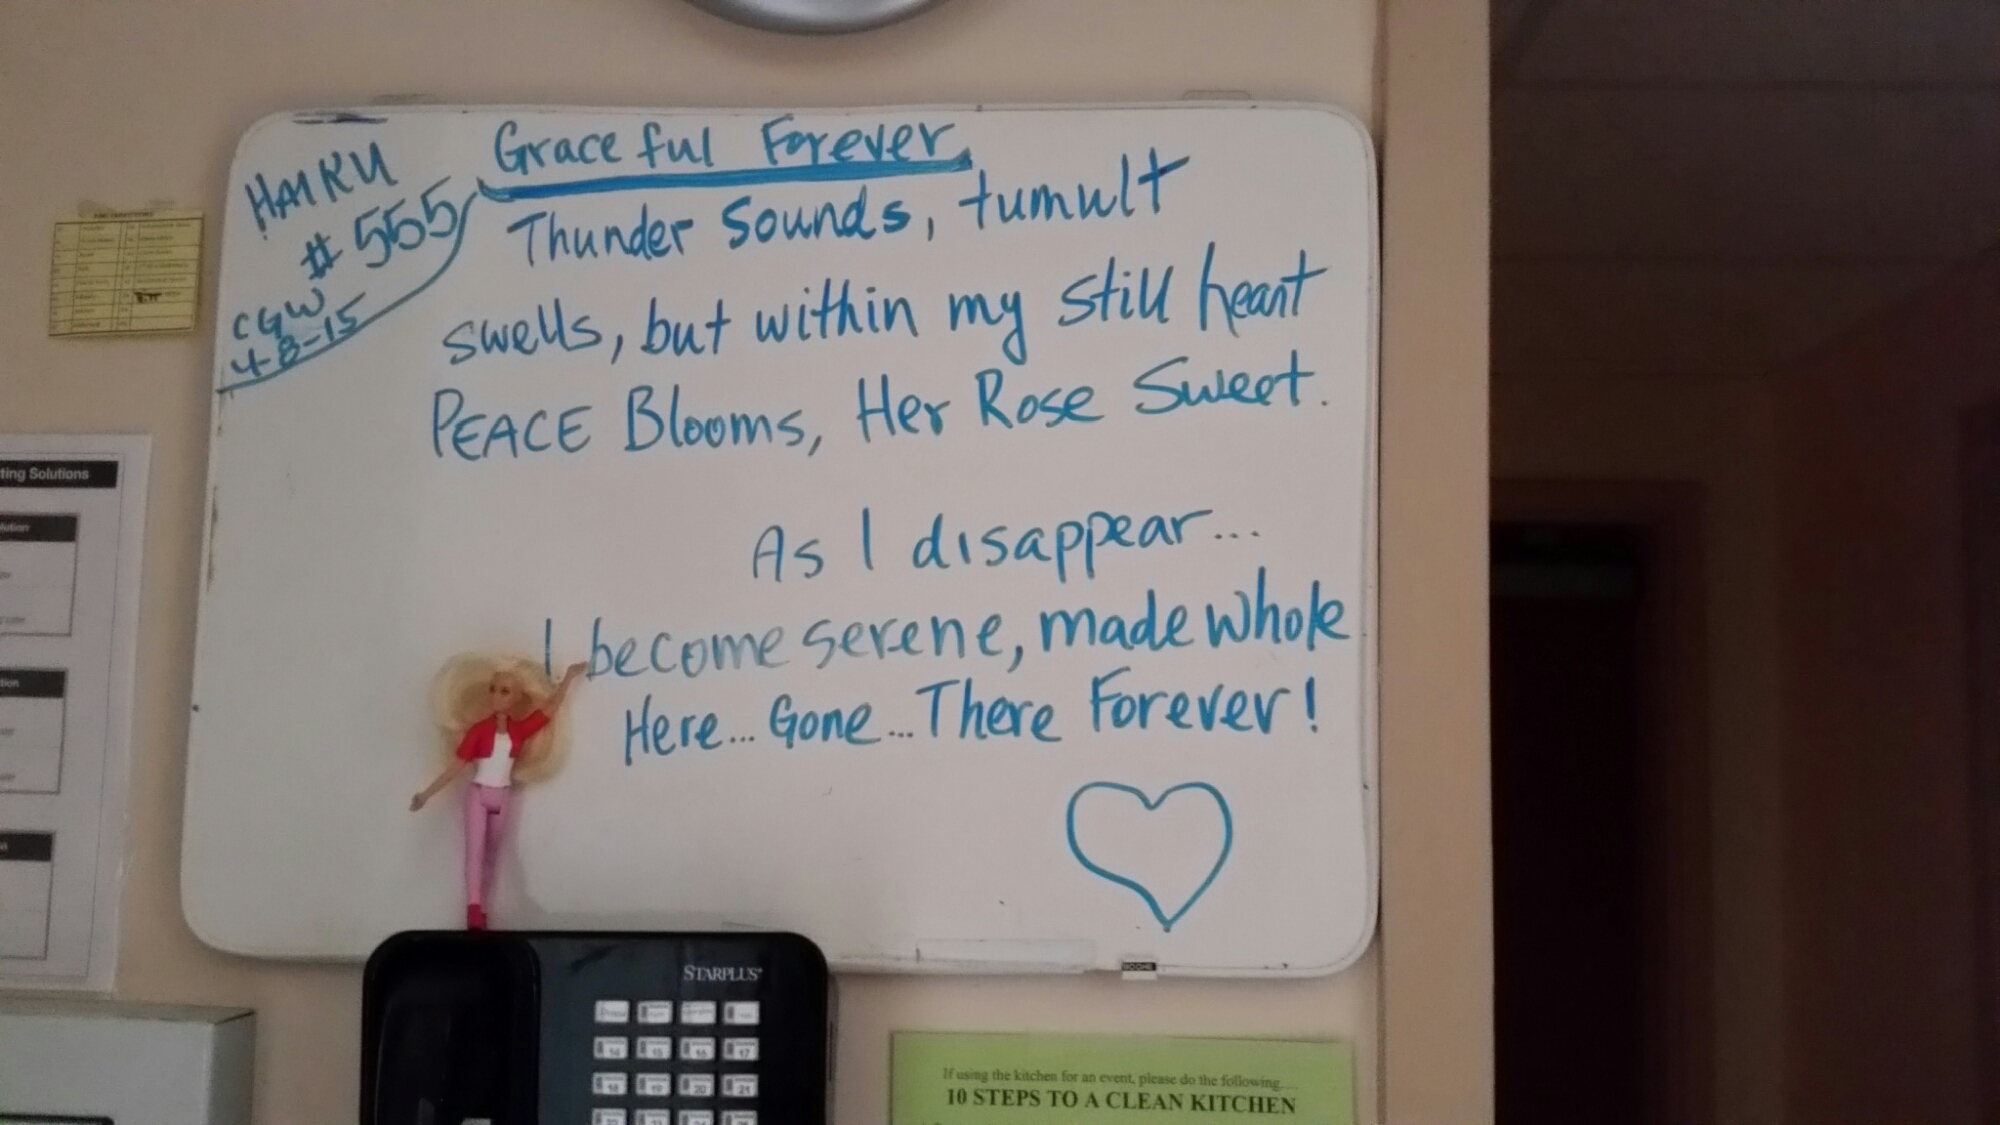 HAIKU
# 555
CGW
4-8-15
Graceful Forever
Thunder Sounds, tumult
swells, but within my still heart
PEACE Blooms, Her Rose Sweet.
As I disappear...
I become serene, made whole
Here... Gone... There Forever!
ting Solutions
STARPLUS
14 15 16 17
18 19 20 21
If using the kitchen for an event, please do the following....
10 STEPS TO A CLEAN KITCHEN